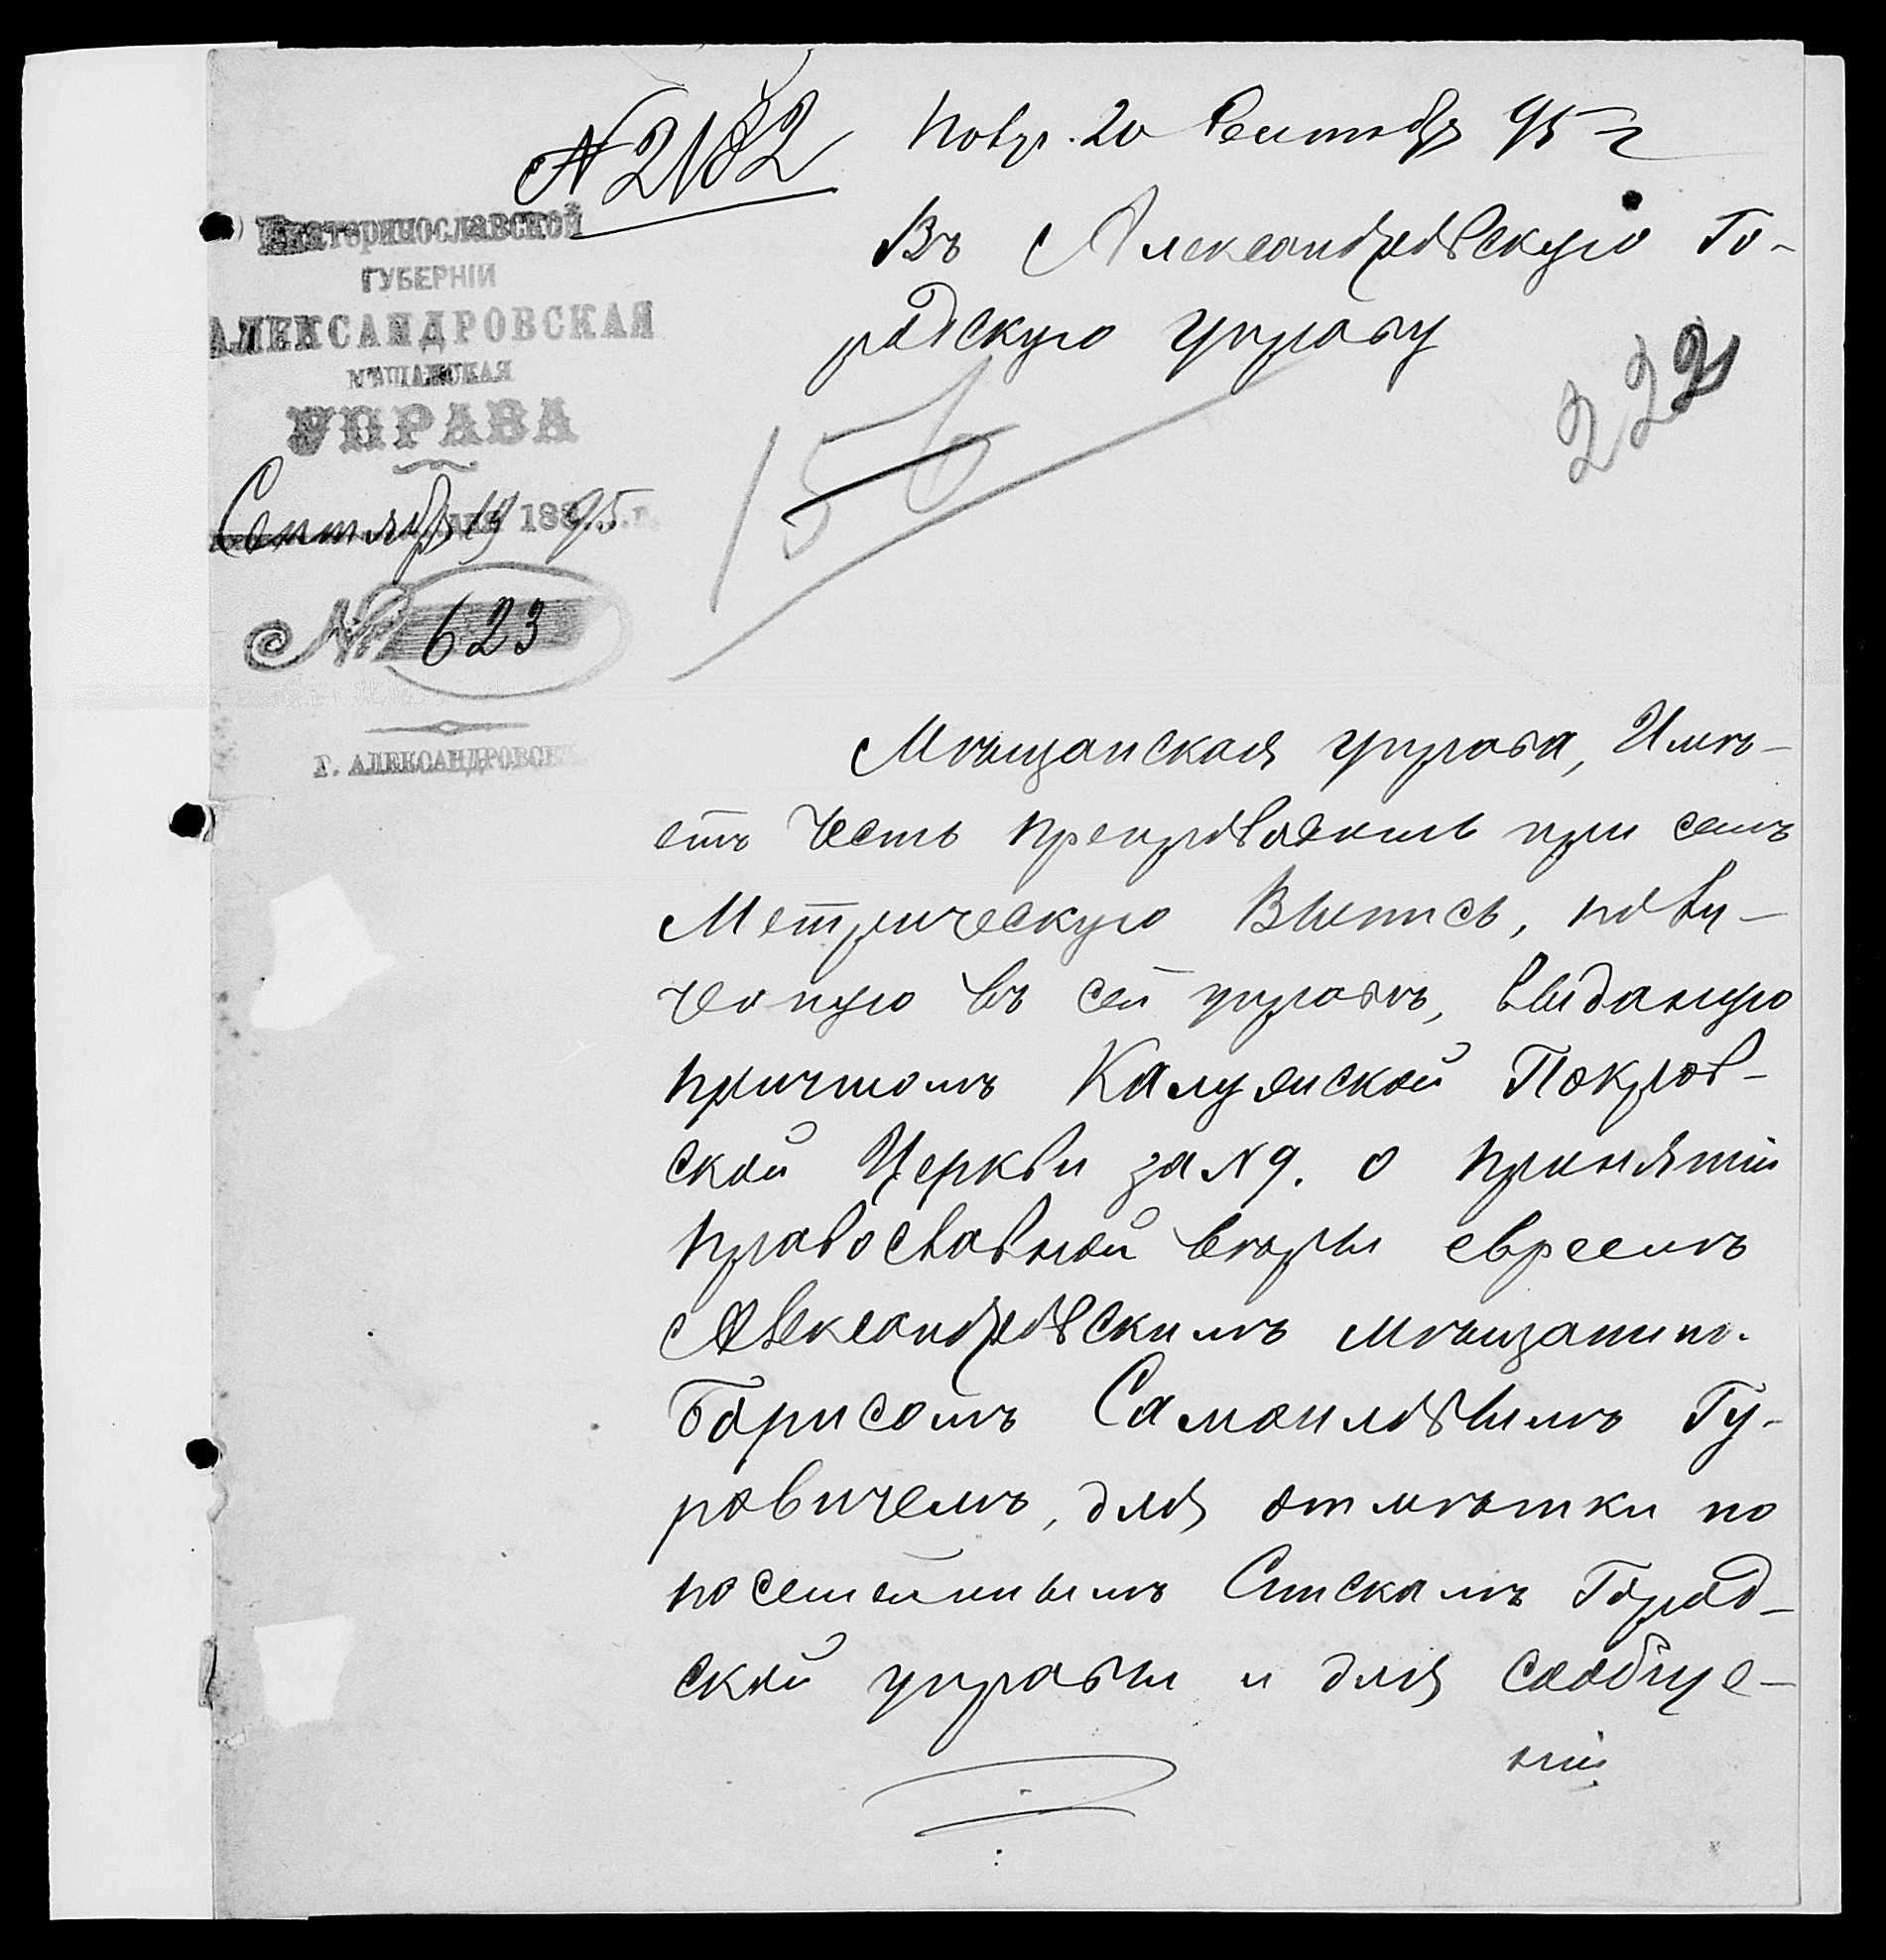 № 2182
Полу. 20 Сентябр 95 г
Екатеринославской
ГУБЕРНІИ
АЛЕКСАНДРОВСКАЯ
МѢЩАНСКАЯ
УПРАВА
Сентябр 19 дня 1895 г.
№ 623
Г. АЛЕКСАНДРОВСКЪ
Въ Александровскую Го-
родскую управу
156
222
Мѣщанская управа, Имѣ-
етъ Честь препроводить при семъ
Метрическую Выпись, полу-
ченую въ сей управѣ, выданую
причтомъ Калужской Покров-
ской Церкви за № 9. о принятіи
православной вѣры евреемъ
Александровскимъ мѣщанино.
Борисомъ Самоиловымъ Гу-
ровичемъ, для отмѣтки по
посемейнымъ Спискамъ Город-
ской управы и для сообще-
ній